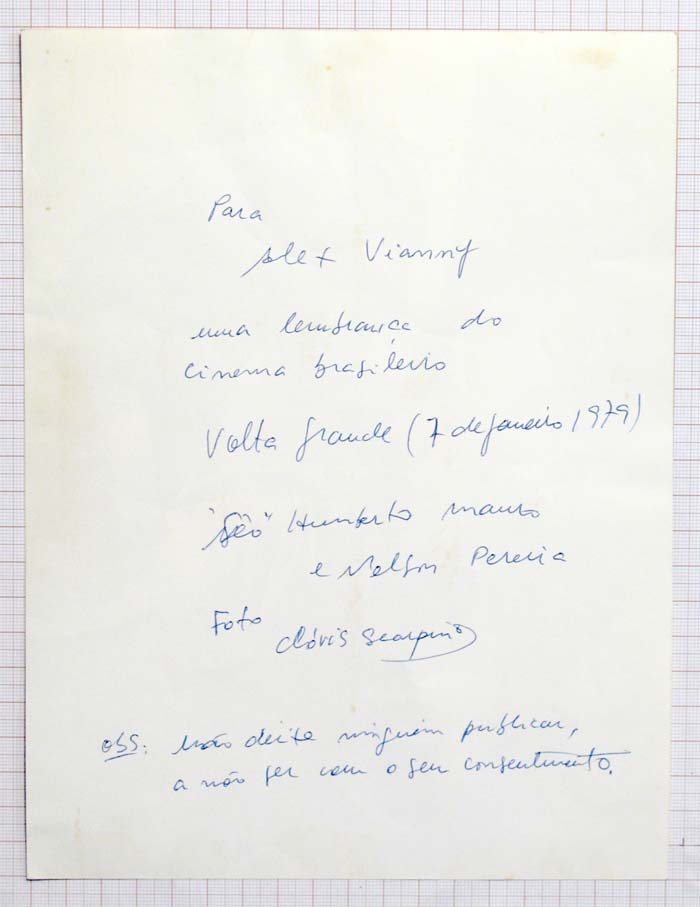 Para
Alex Vianny
uma lembrança do
cinema brasileiro
Volta Grande (7 de janeiro 1979)
"Sêo" Humberto Mauro
e Nelson Pereira
Foto
Clóvis Scarpino
OBS: Não deixe ninguém publicar,
a não ser com o seu consentimento.